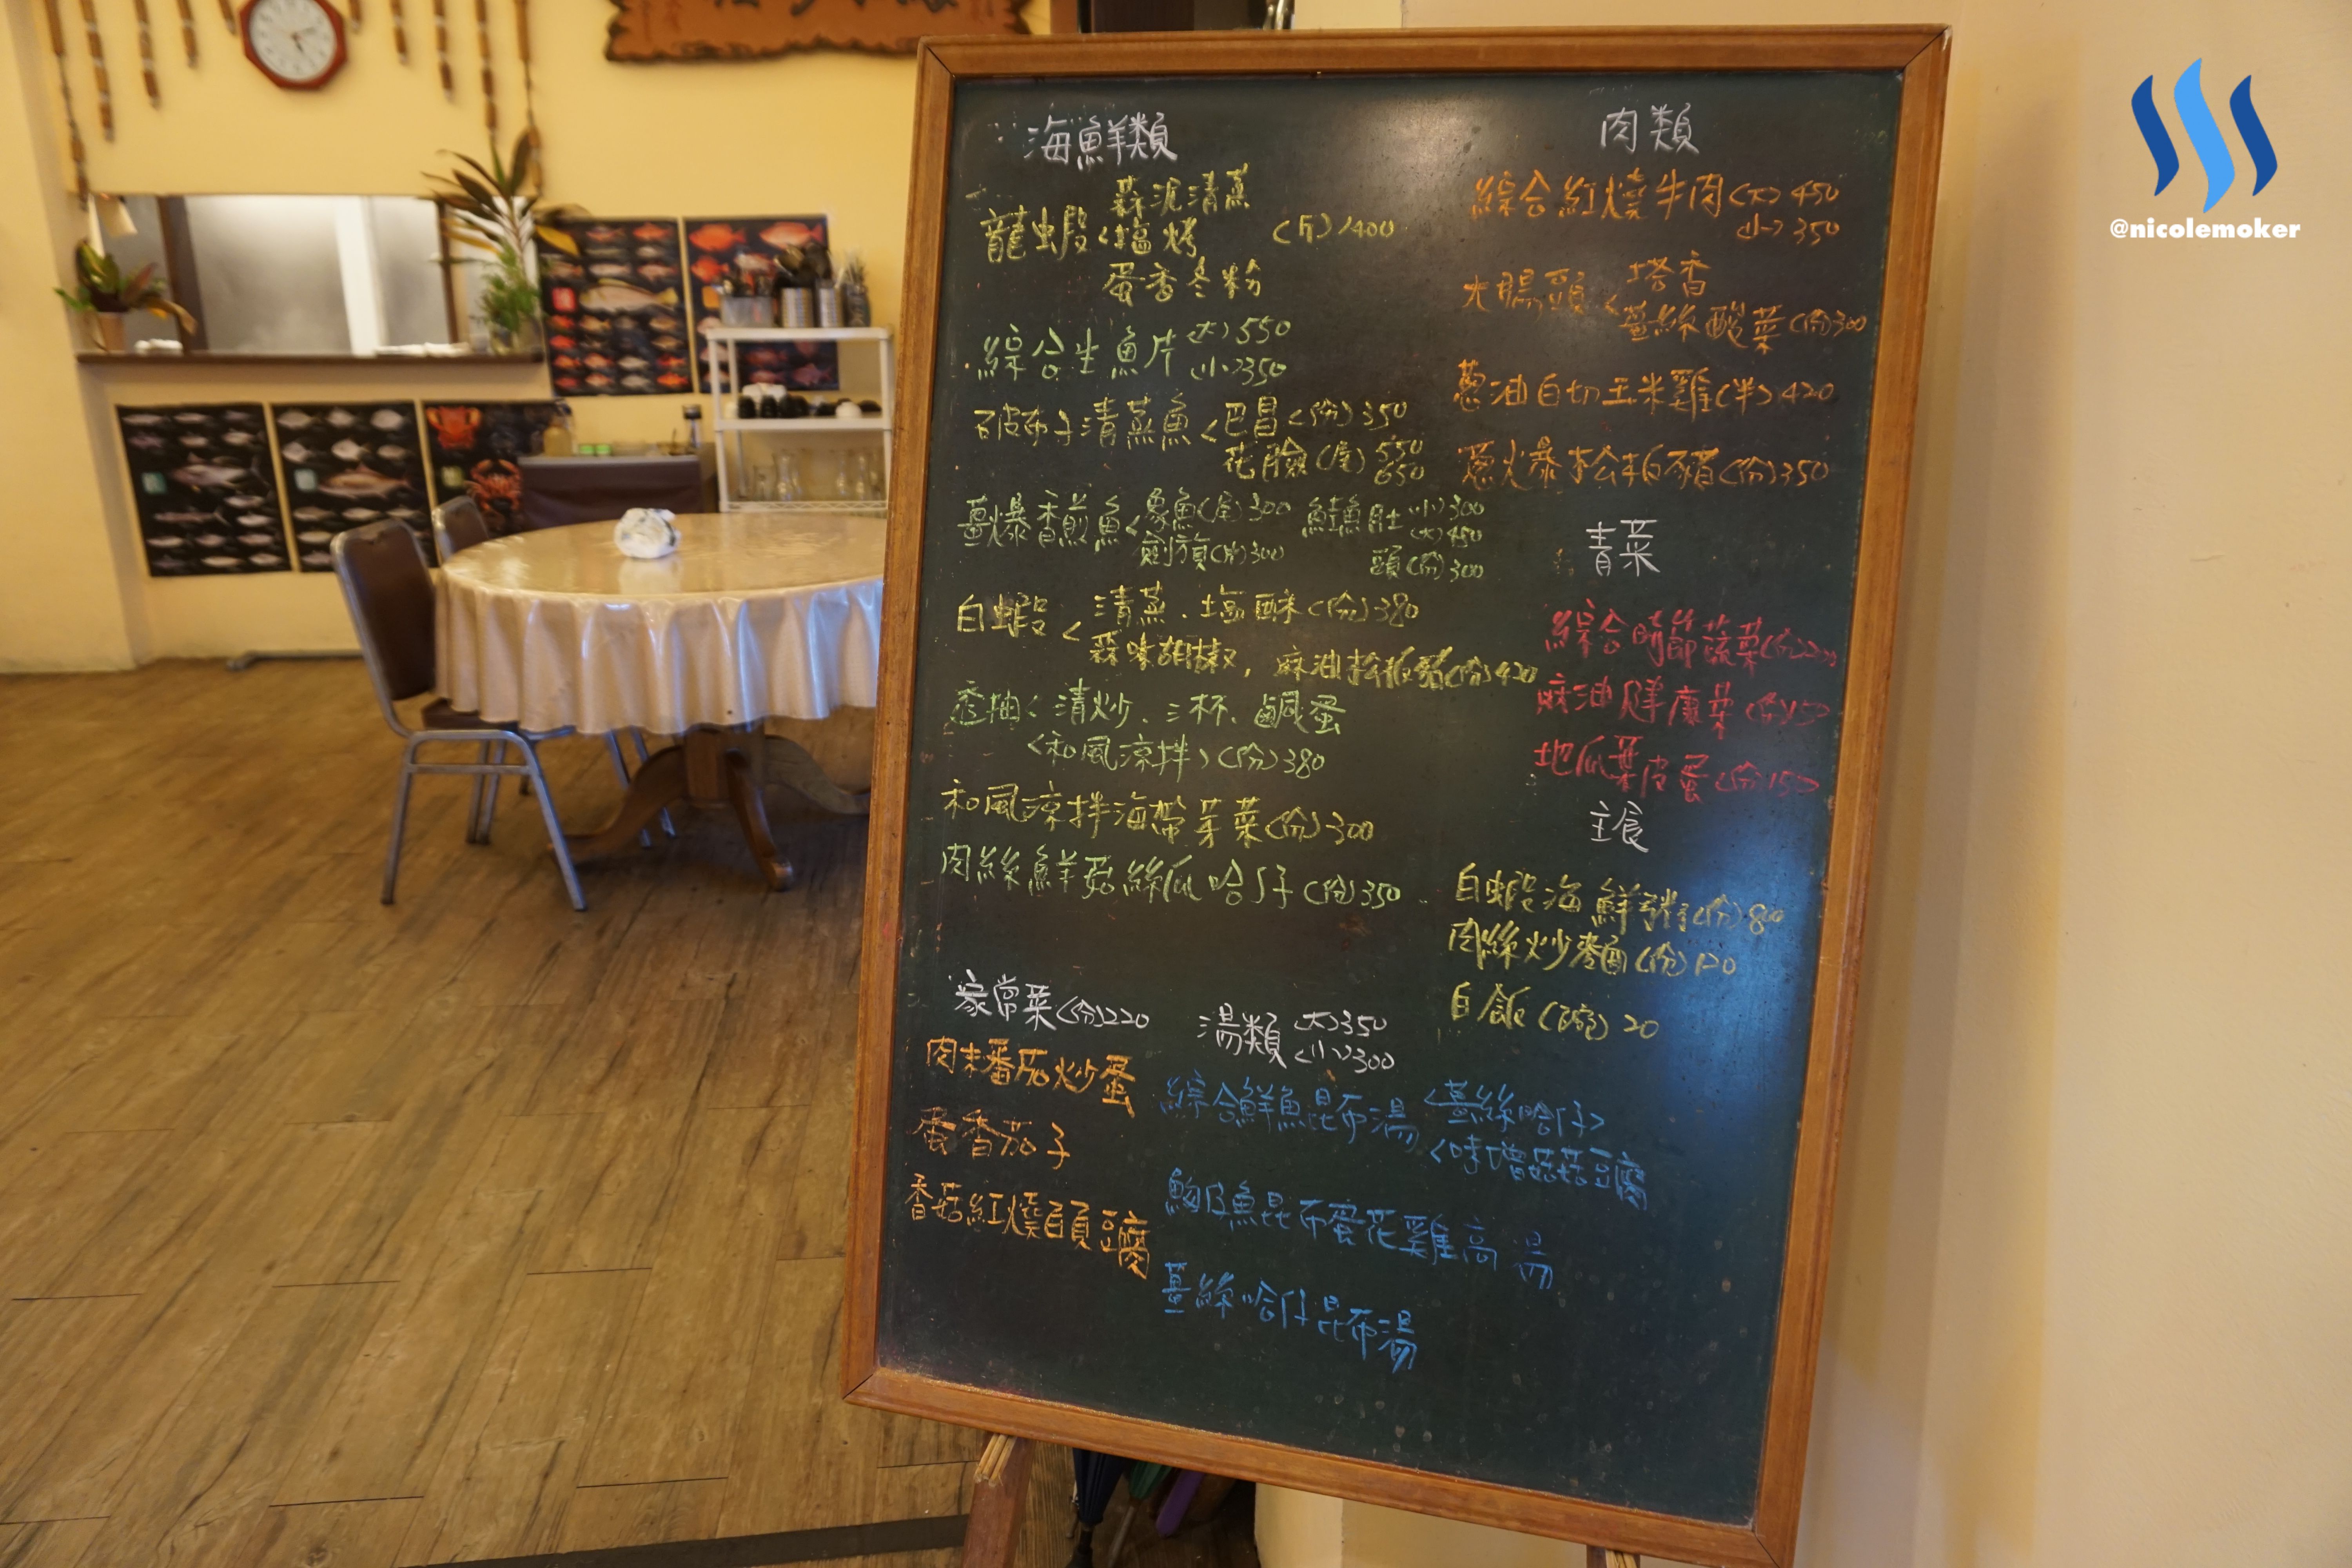 海鮮類
蒜泥清蒸
龍蝦<塩烤 (斤)1400
蛋香冬粉
綜合生魚片(大)550
(小)350
破布子清蒸魚<巴昌(份)350
花臉(尾)550
650
薑爆香煎魚<象魚(尾)300 鮭魚肚(小)300
劍旗(片)300 (大)450
頭(份)300
白蝦<清蒸、塩酥(份)380
蒜味胡椒, 麻油松板豬(份)420
透抽<清炒、三杯、鹹蛋
<和風涼拌>(份)380
和風涼拌海帶芽菜(份)300
肉絲鮮菇絲瓜哈仔(份)350
家常菜(份)220
肉末番茄炒蛋
蛋香茄子
香菇紅燒豆腐
湯類(大)350
(小)300
綜合鮮魚昆布湯<薑絲哈仔>
<味噌菇菇豆腐
魩仔魚昆布蛋花雞高湯
薑絲哈仔昆布湯
肉類
綜合紅燒牛肉(大)450
(小)350
大腸頭<塔香
薑絲酸菜(份)300
蔥油白切玉米雞(半)420
蔥爆松板豬(份)350
青菜
綜合時節蔬菜(份)
麻油健康菜(份)150
地瓜葉皮蛋(份)150
主食
白蝦海鮮粥(份)800
肉絲炒麵(份)120
白飯(碗)20
@nicolemoker